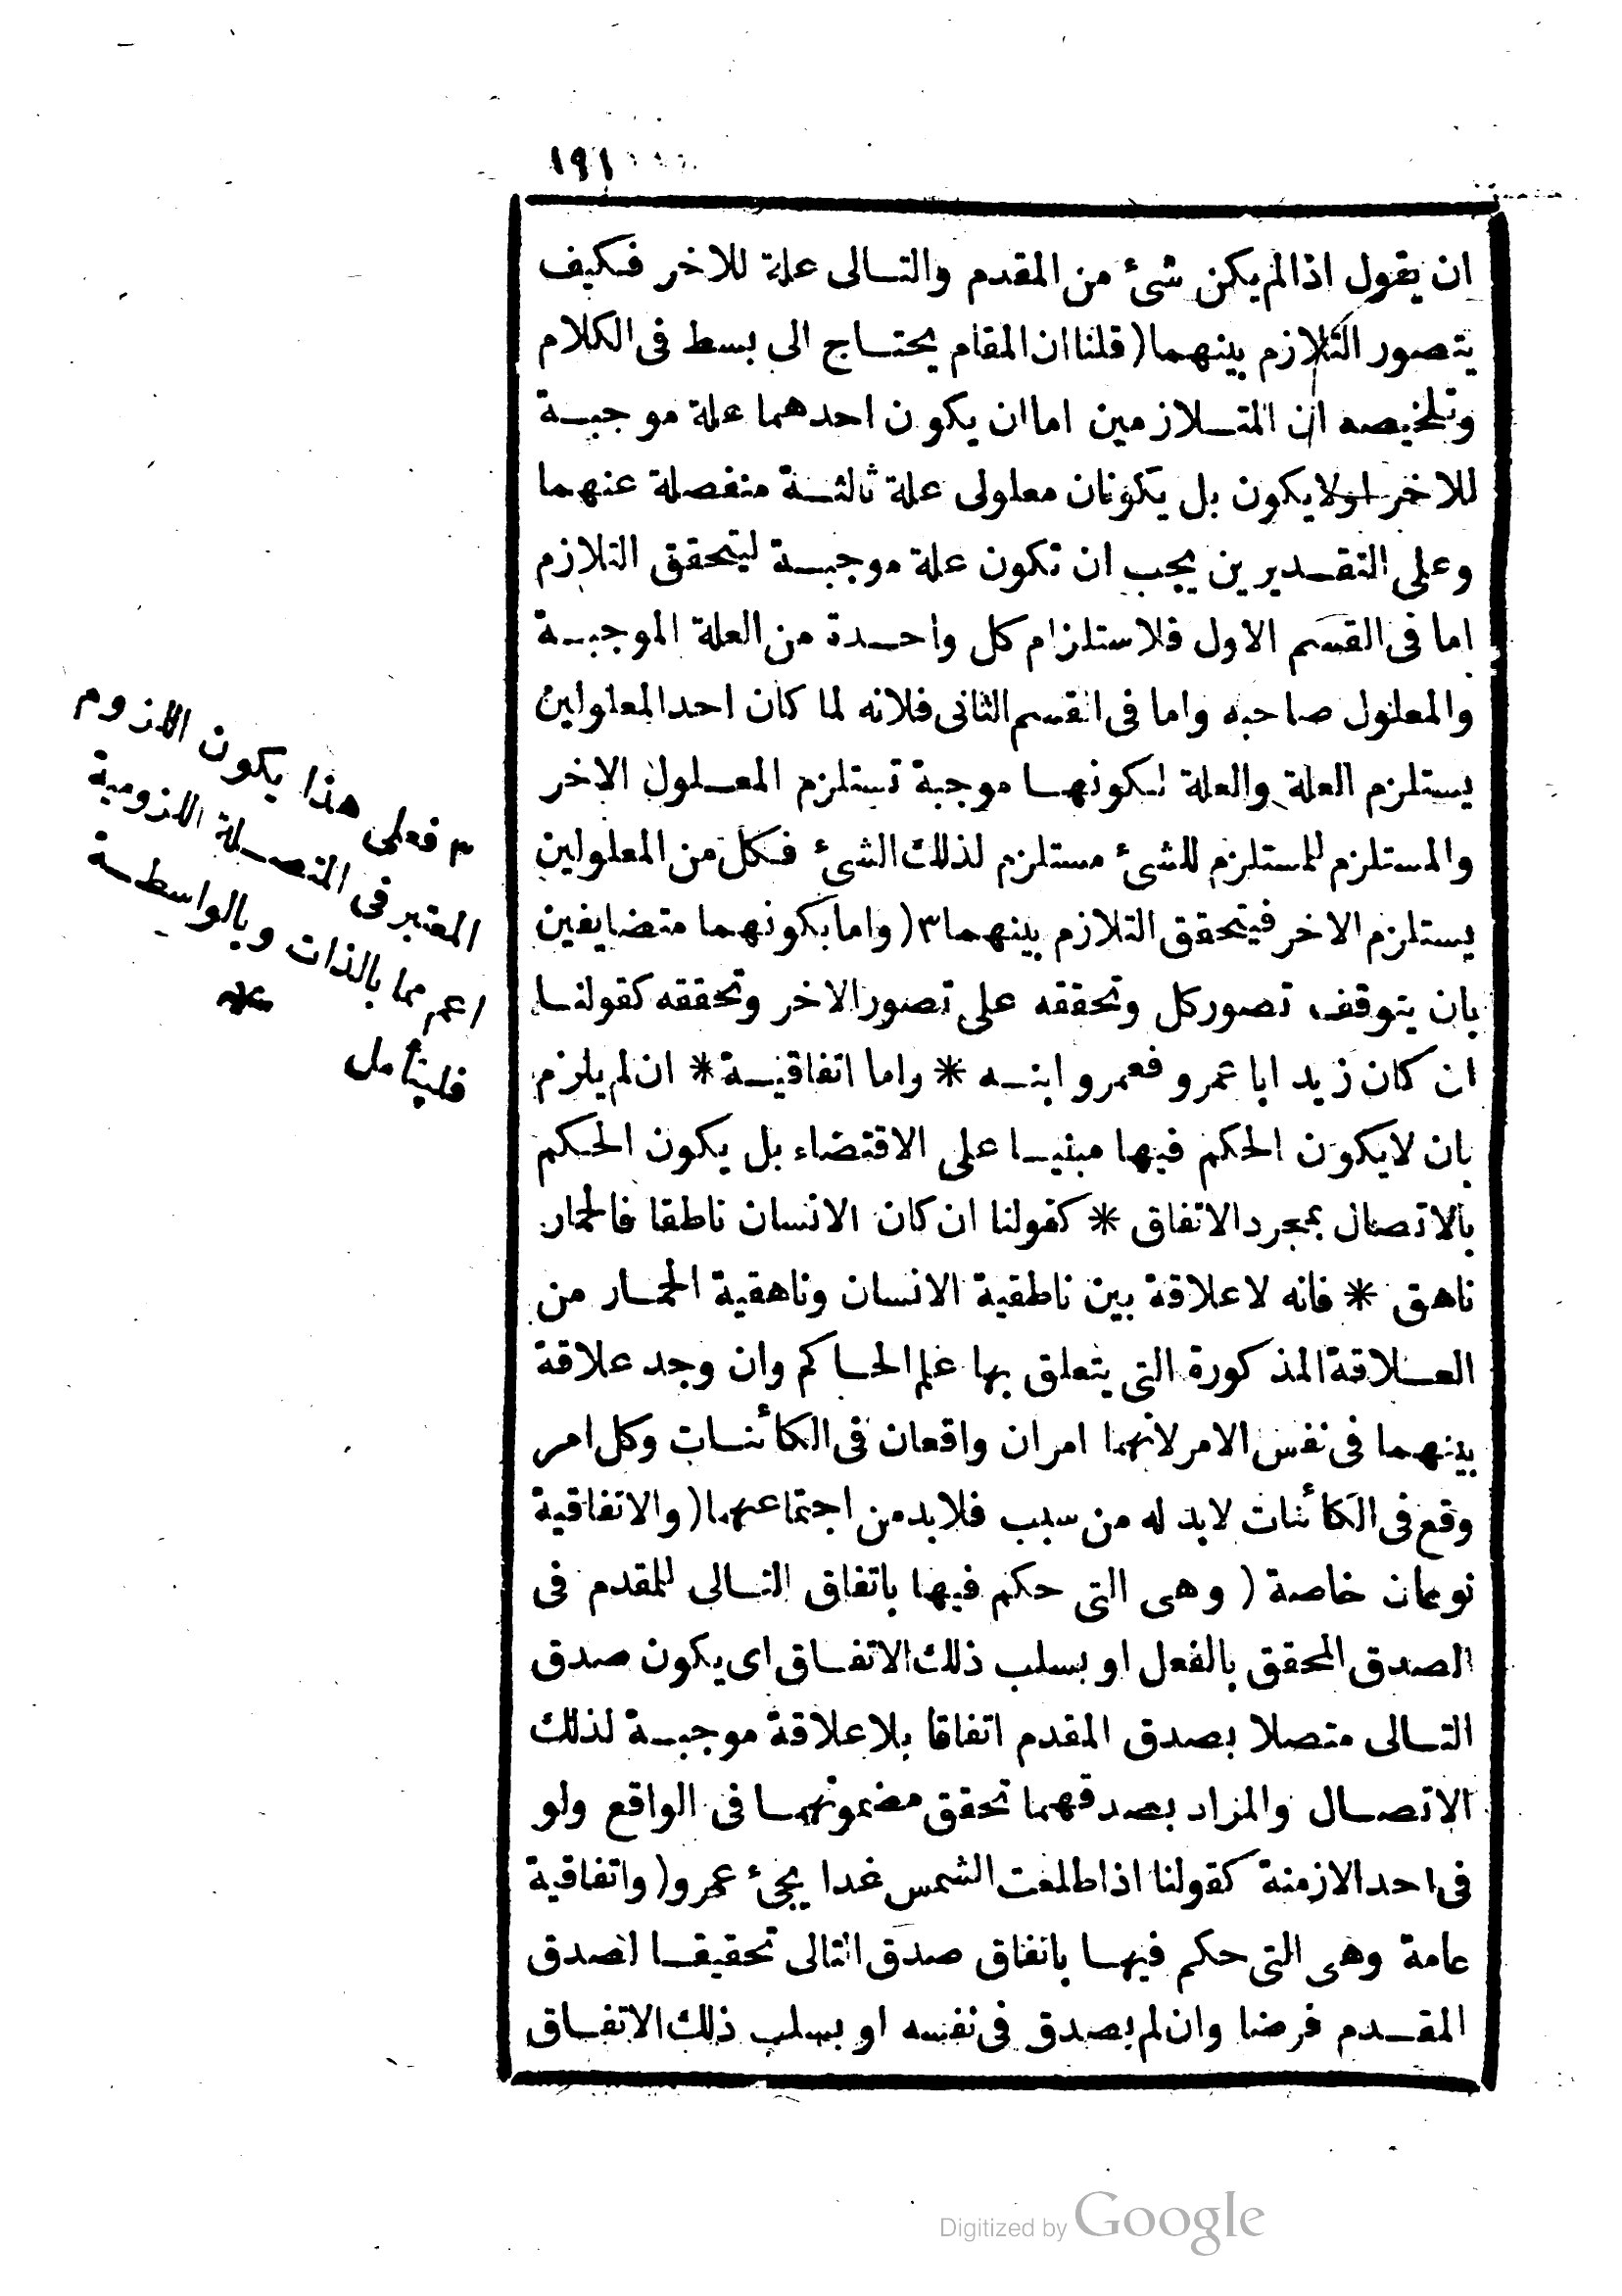 ١٩١
ان يقول اذا لم يكن شئ من المقدم والتالى علة للاخر فكيف
يتصور التلازم بينهما (قلنا ان المقام يحتاج الى بسط فى الكلام
وتلخيصه ان المتلازمين اما ان يكون احدهما علة موجبة
للاخر اولا يكون بل يكونان معلولى علة ثالثة منفصلة عنهما
وعلى التقديرين يجب ان تكون علة موجبة ليتحقق التلازم
اما فى القسم الاول فلاستلزام كل واحدة من العلة الموجبة
والمعلول صاحبه واما فى القسم الثانى فلانه لما كان احد المعلولين
يستلزم العلة والعلة لكونها موجبة تستلزم المعلول الاخر
والمستلزم للمستلزم للشئ مستلزم لذلك الشئ فكل من المعلولين
يستلزم الاخر فيتحقق التلازم بينهما ٣ (واما بكونهما متضايفين
بان يتوقف تصور كل وتحققه على تصور الاخر وتحققه كقولنا
ان كان زيد ابا عمرو فعمرو ابنه * واما اتفاقية * ان لم يلزم
بان لا يكون الحكم فيها مبنيا على الاقتضاء بل يكون الحكم
بالاتصال بمجرد الاتفاق * كقولنا ان كان الانسان ناطقا فالحمار
ناهق * فانه لا علاقة بين ناطقية الانسان وناهقية الحمار من
العلاقة المذكورة التى يتعلق بها علم الحاكم وان وجد علاقة
بينهما فى نفس الامر لانهما امران واقعان فى الكائنات وكل امر
وقع فى الكائنات لا بد له من سبب فلا بد من اجتماعهما (والاتفاقية
نوعان خاصة ( وهى التى حكم فيها باتفاق التالى للمقدم فى
الصدق المحقق بالفعل او بسلب ذلك الاتفاق اى يكون صدق
التالى متصلا بصدق المقدم اتفاقا بلا علاقة موجبة لذلك
الاتصال والمراد بصدقهما تحقق مضمونهما فى الواقع ولو
فى احد الازمنة كقولنا اذا طلعت الشمس غدا يجئ عمرو (واتفاقية
عامة وهى التى حكم فيها باتفاق صدق التالى تحقيقا لصدق
المقدم فرضا وان لم يصدق فى نفسه او بسلب ذلك الاتفاق
٣ فعلى هذا يكون اللزوم
المعتبر فى المتصلة اللزومية
اعم مما بالذات وبالواسطة
فليتأمل
منه
Digitized by Google